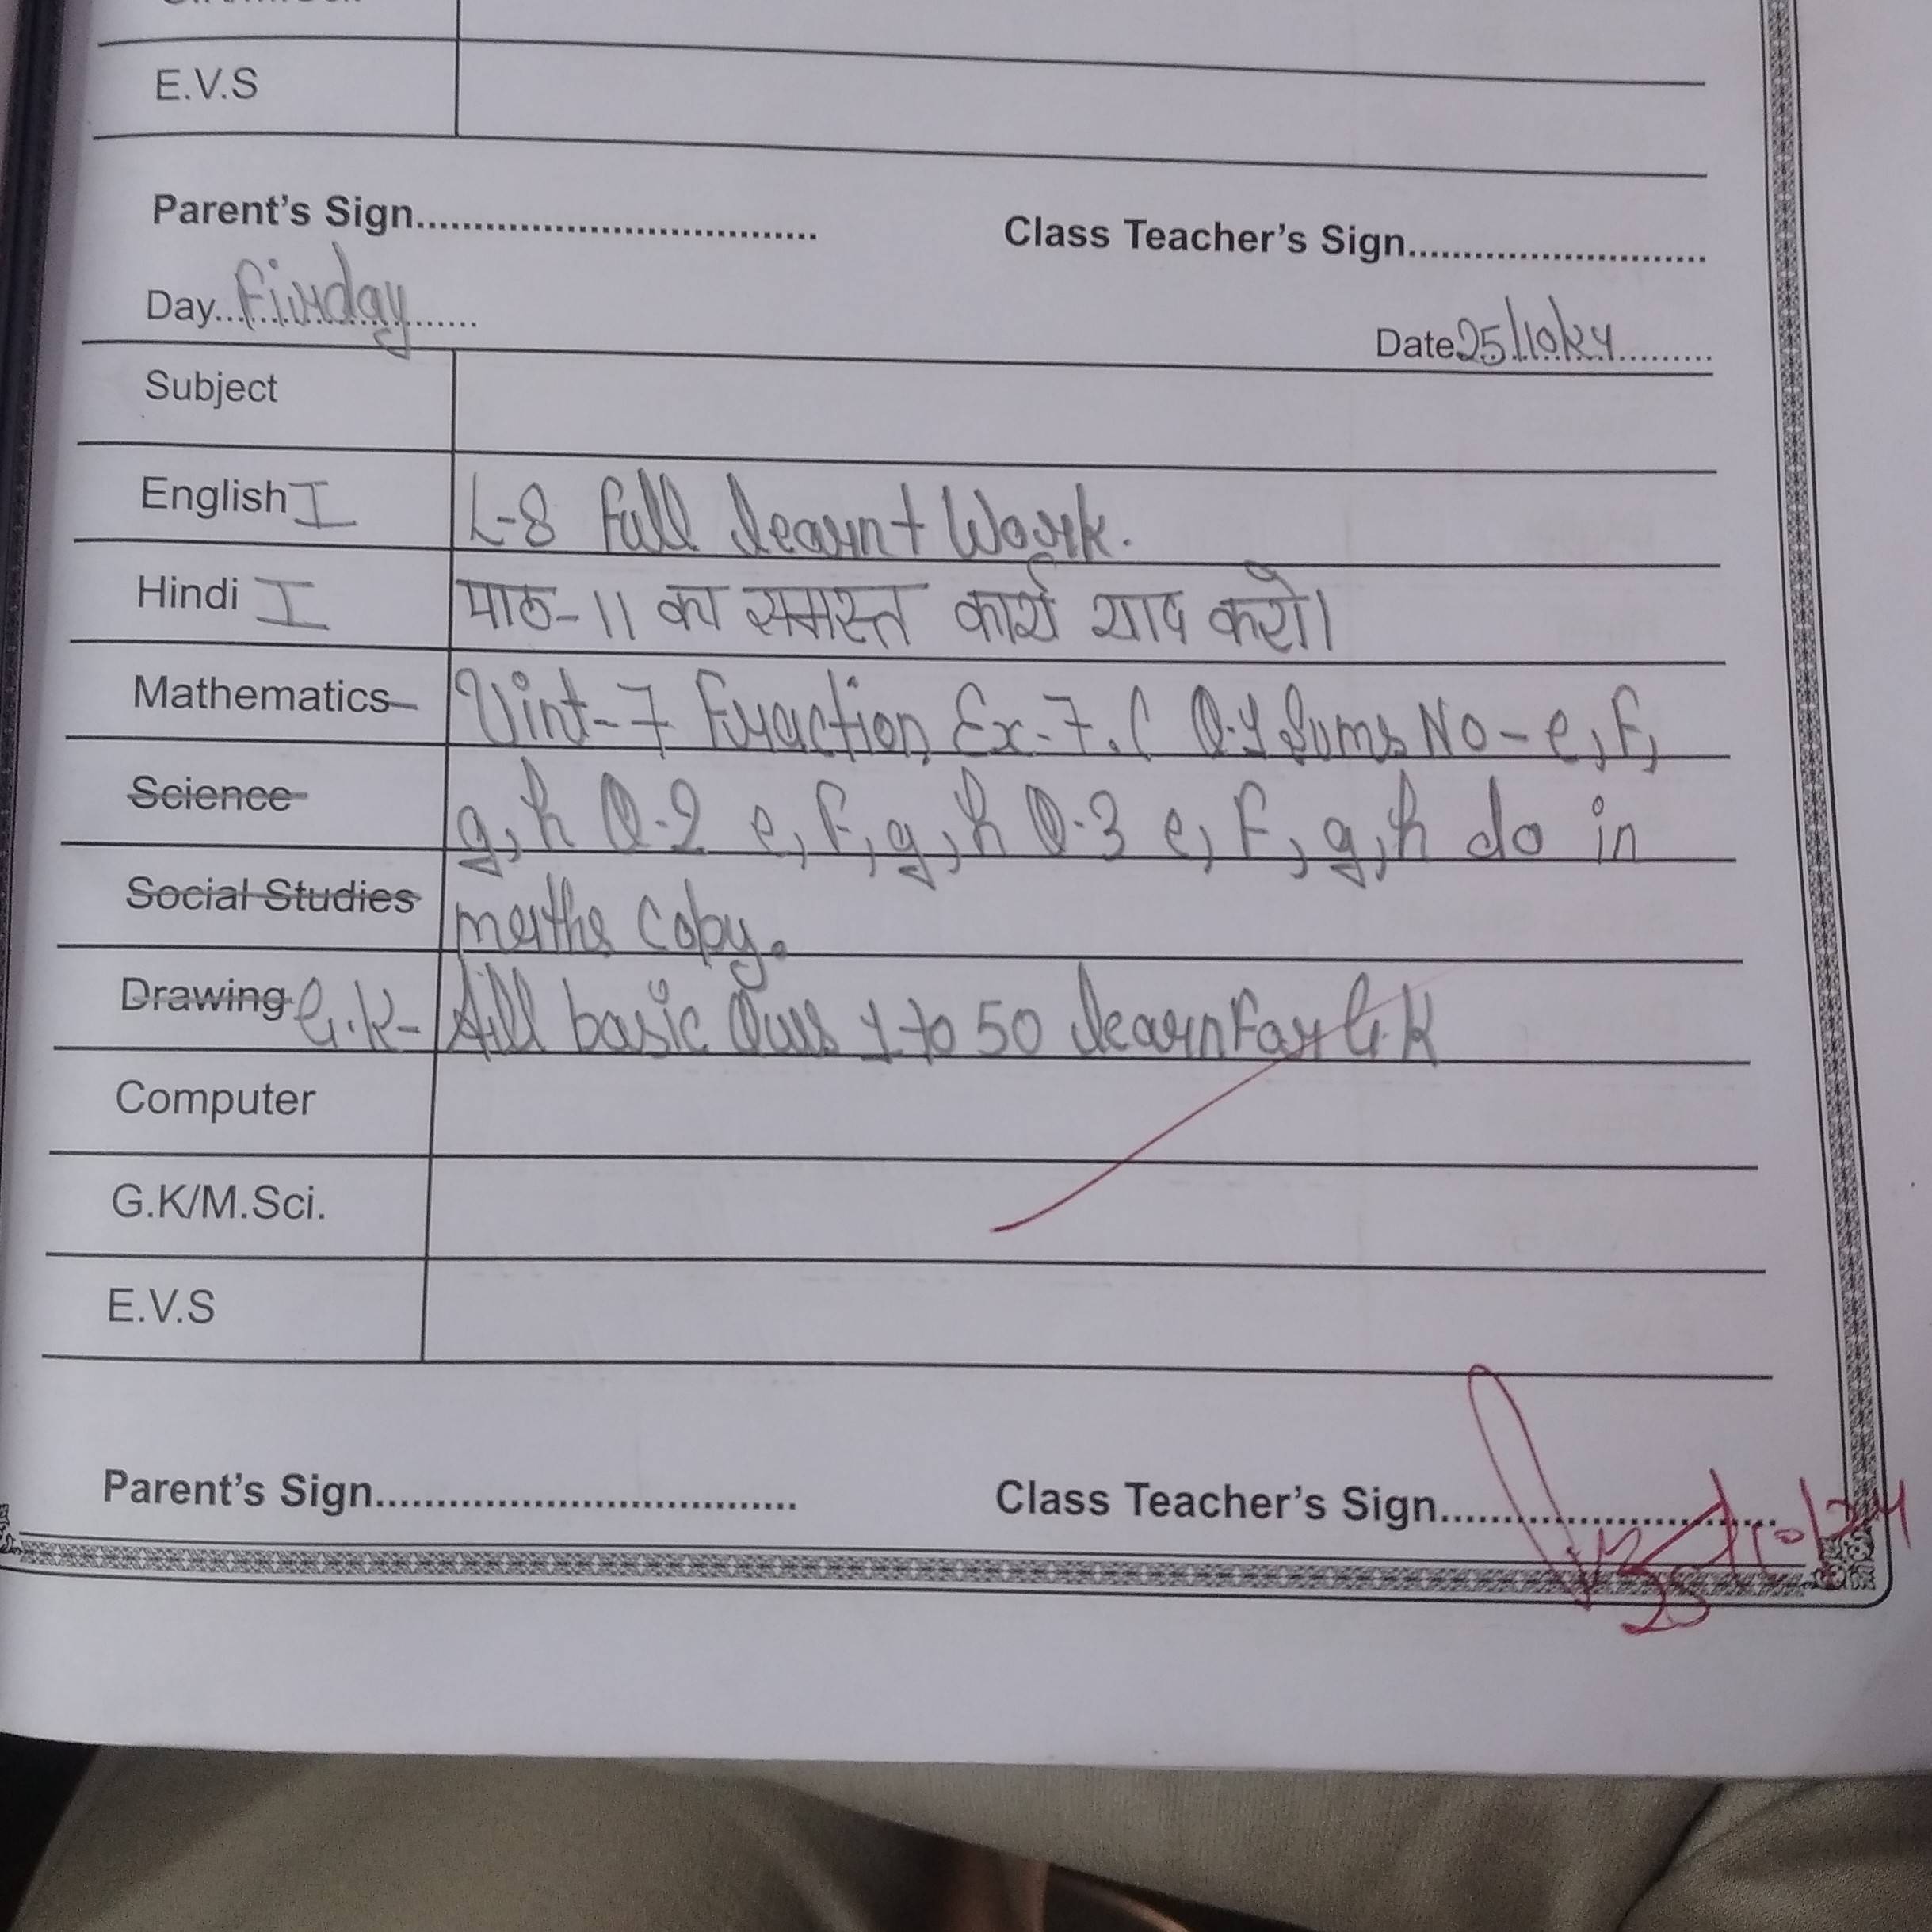 E.V.S
Parent's Sign.................................. Class Teacher's Sign.........................
Day...Firday...... Date25/10/24.........
Subject
English I L-8 full learnt Work.
Hindi I पाठ-11 का समस्त कार्य याद करो।
Mathematics- Uint-7 Fraction Ex-7.C Q.1 Sums No-e, F,
Science g, h Q.2 e, F, g, h Q.3 e, F, g, h do in
Social Studies maths copy.
Drawing G.K- All basic Qus 1 to 50 learn For G.K
Computer
G.K/M.Sci.
E.V.S
Parent's Sign.................................. Class Teacher's Sign...........................
25/10/24